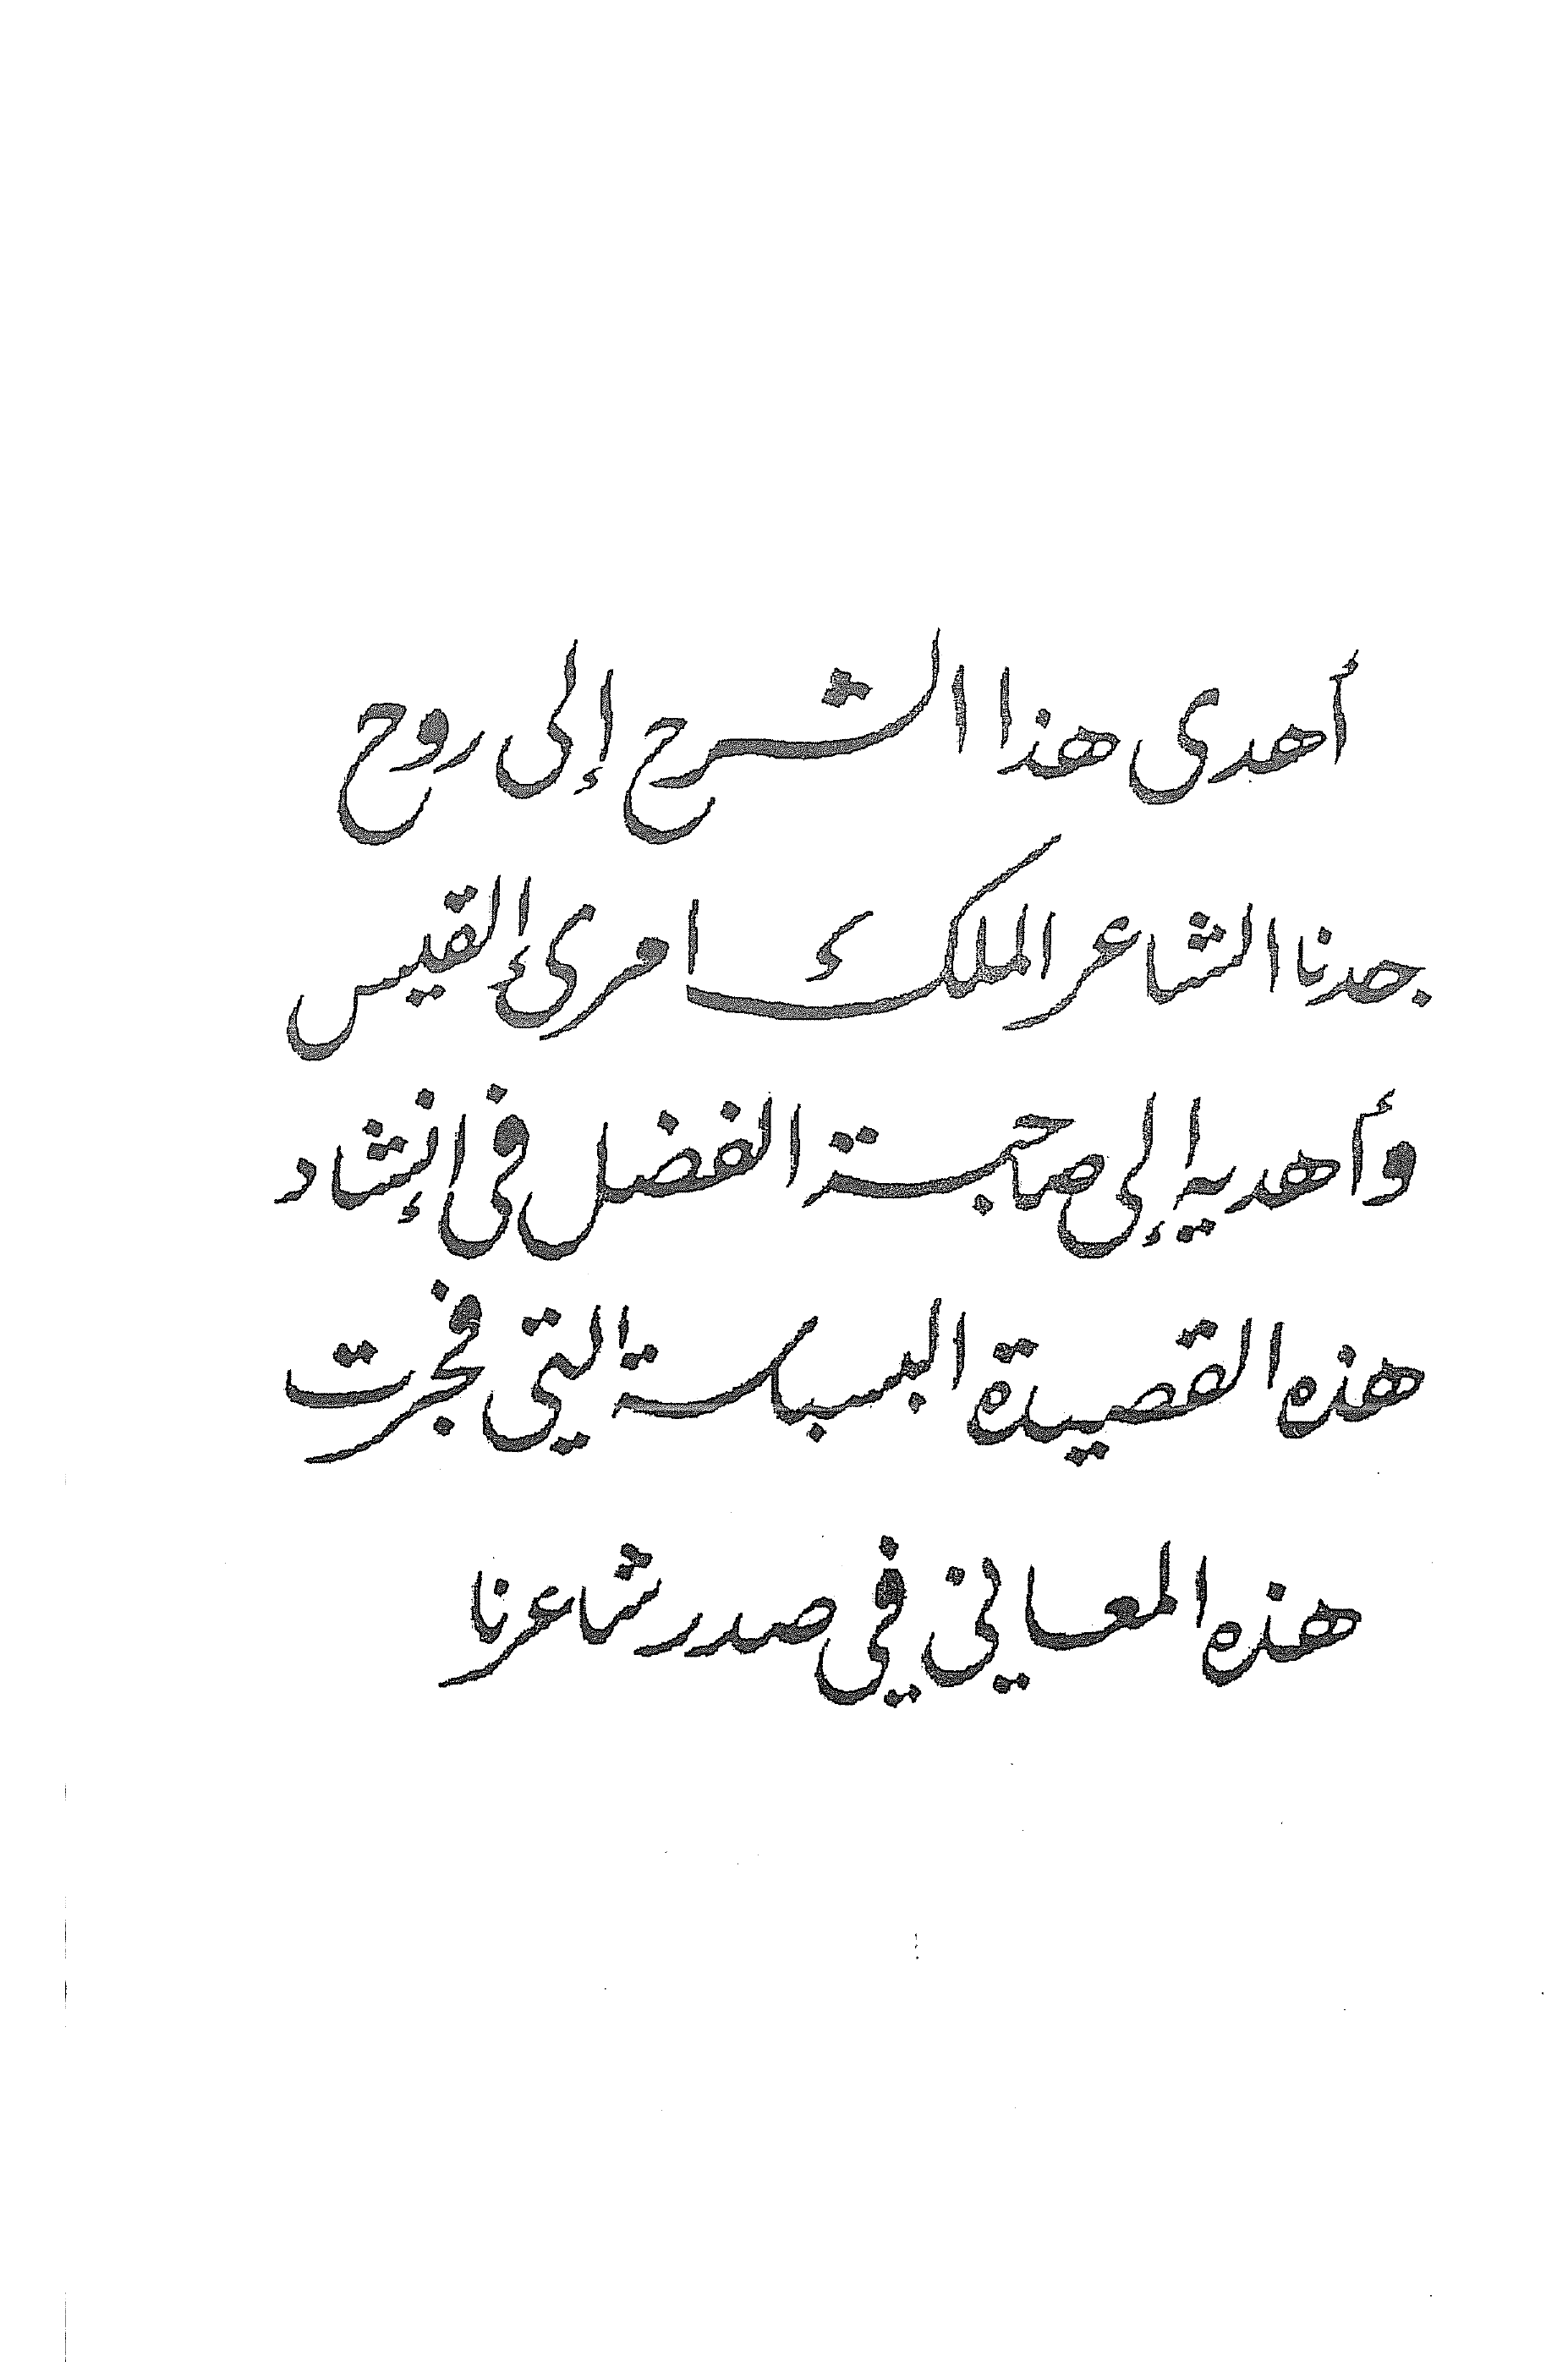 أهدى هذا الشرح إلى روح
جدنا الشاعر الملك امرئ القيس
وأهديه إلى صاحبة الفضل في إنشاد
هذه القصيدة البسباسة التي فجرت
هذه المعاني في صدر شاعرنا